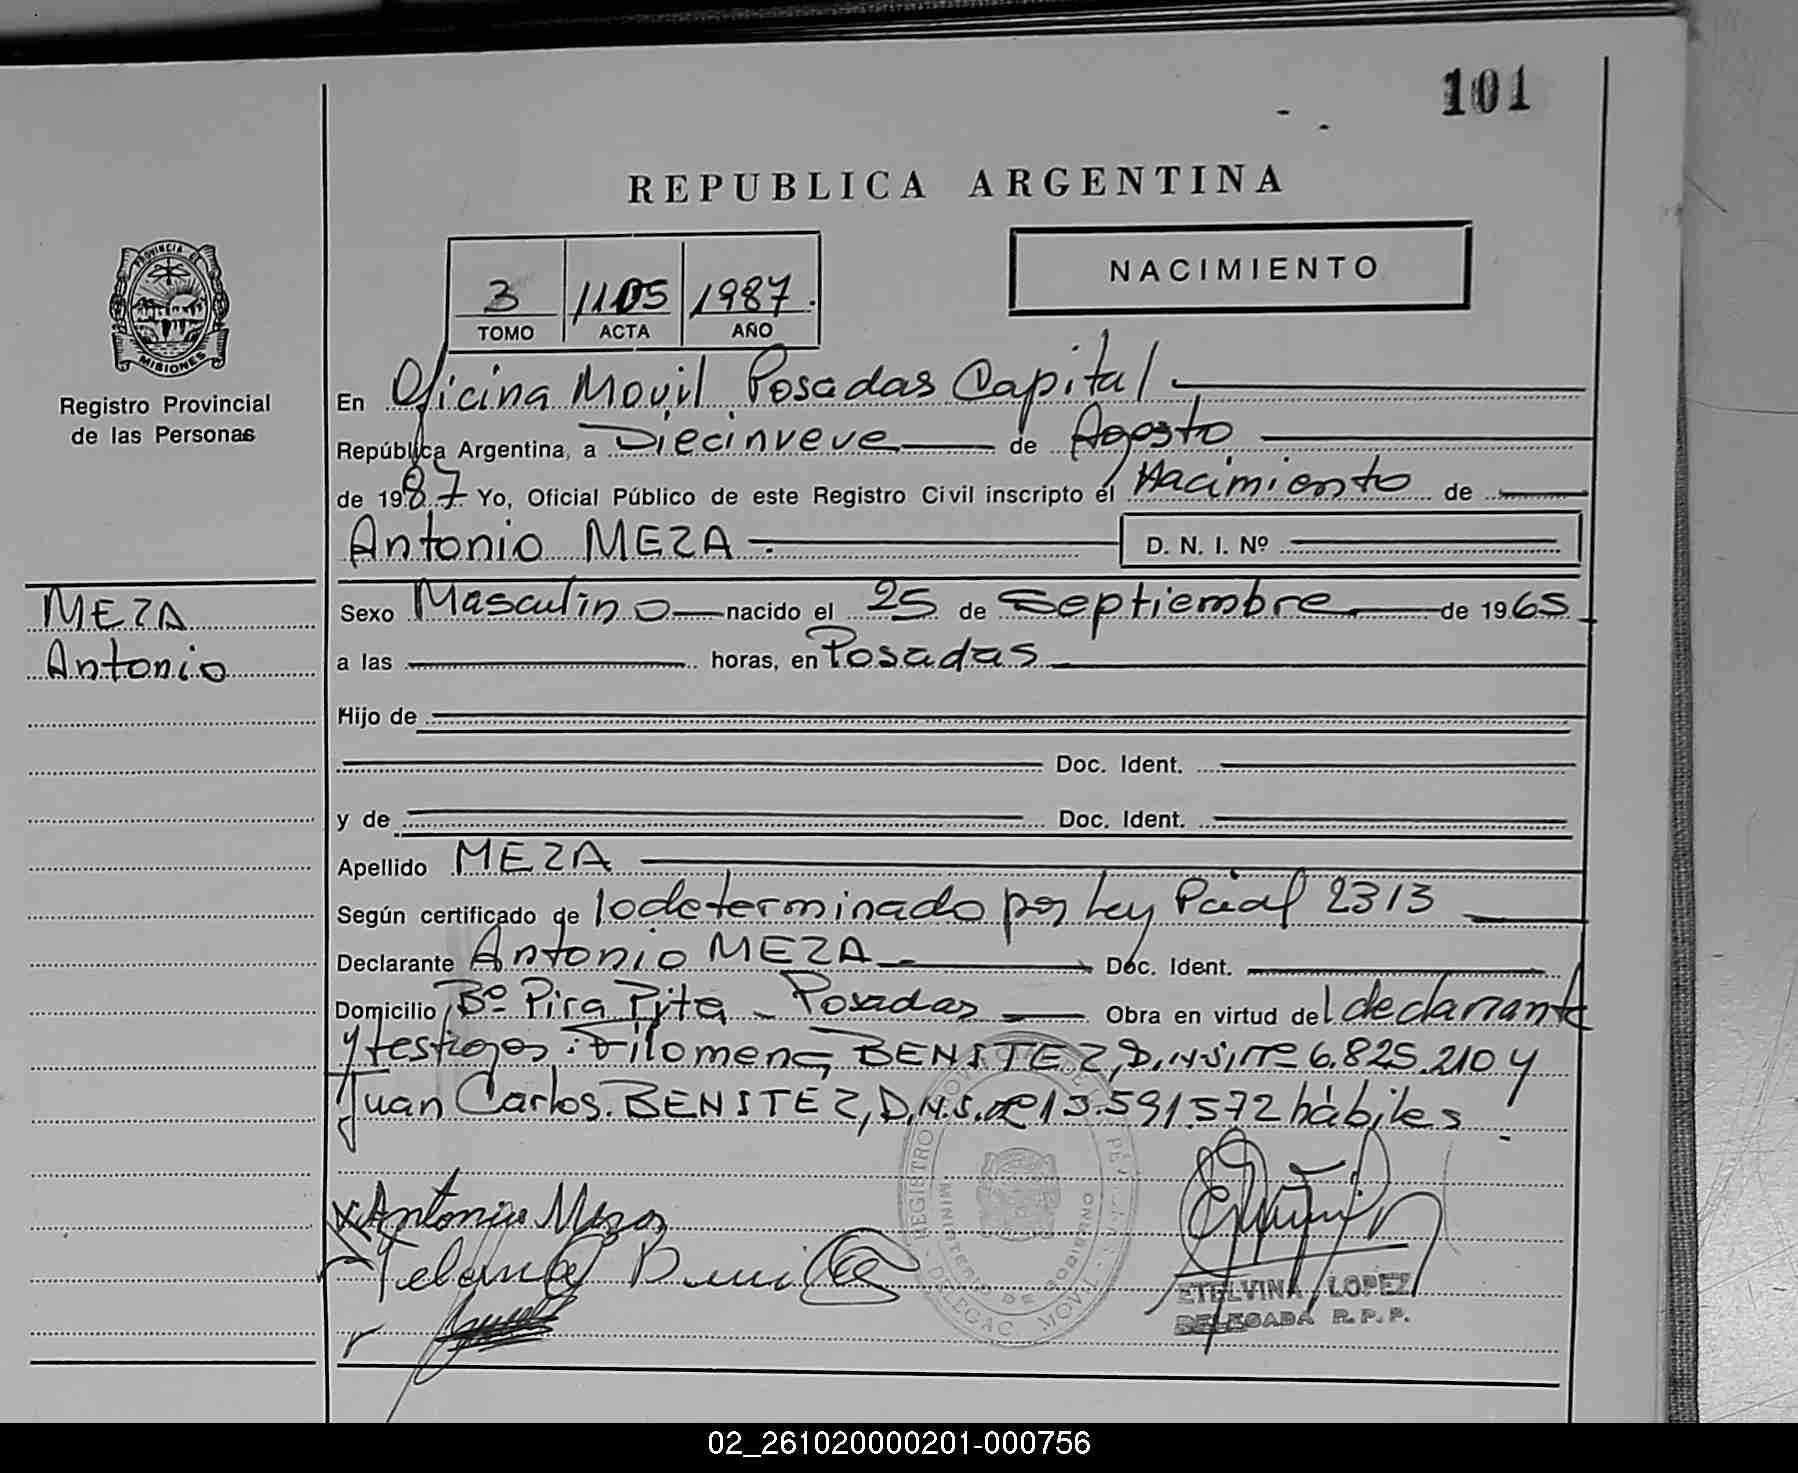 101
REPUBLICA ARGENTINA
NACIMIENTO
3 1105 1987.
TOMO ACTA AÑO
PROVINCIA DE
MISIONES
Registro Provincial
de las Personas
En Oficina Movil Posadas Capital
República Argentina, a Diecinveve de Agosto
de 1987 Yo, Oficial Público de este Registro Civil inscripto el Nacimiento de
Antonio MEZA D. N. I. Nº
MEZA
Antonio
Sexo Masculino nacido el 25 de Septiembre de 1965
a las horas, en Posadas
Hijo de
Doc. Ident.
y de Doc. Ident.
Apellido MEZA
Según certificado de Indeterminado por Ley Pcial 2313
Declarante Antonio MEZA Doc. Ident.
Domicilio Bº Pira Pita - Posadas Obra en virtud del declarante
y testigos: Filomena BENITEZ, D.N.I. nº 6.825.210 y
Juan Carlos BENITEZ, D.N.I. nº 13.591.572 hábiles
Antonio Meza
ETELVINA LOPEZ
DELEGADA R.P.P.
REGISTRO PROVINCIAL DE LAS PERSONAS
MINISTERIO DE GOBIERNO
DELEGAC MOVIL
02_261020000201-000756